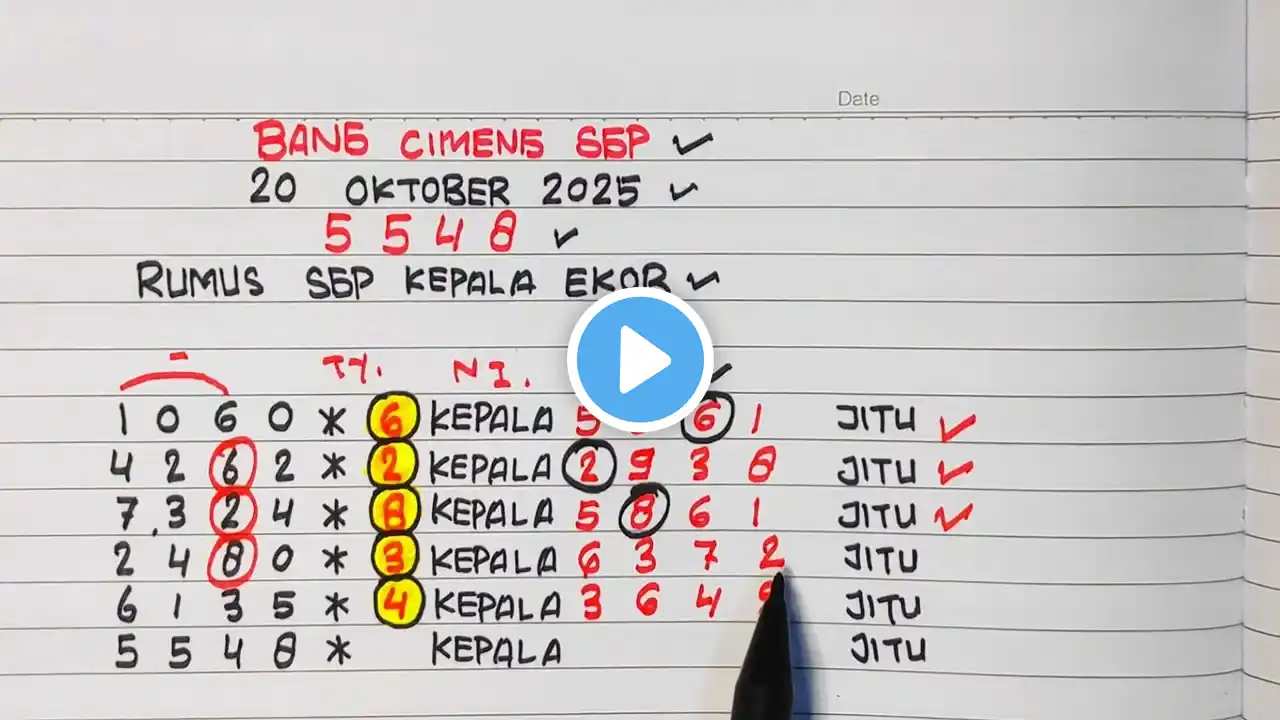 Date
BANG CIMENG SGP
20 OKTOBER 2025
5 5 4 8
RUMUS SGP KEPALA EKOR
- TY. N I.
1 0 6 0 * 6 KEPALA 5 6 1 JITU
4 2 6 2 * 2 KEPALA 2 9 3 8 JITU
7 3 2 4 * 8 KEPALA 5 8 6 1 JITU
2 4 8 0 * 3 KEPALA 6 3 7 2 JITU
6 1 3 5 * 4 KEPALA 3 6 4 JITU
5 5 4 8 * KEPALA JITU